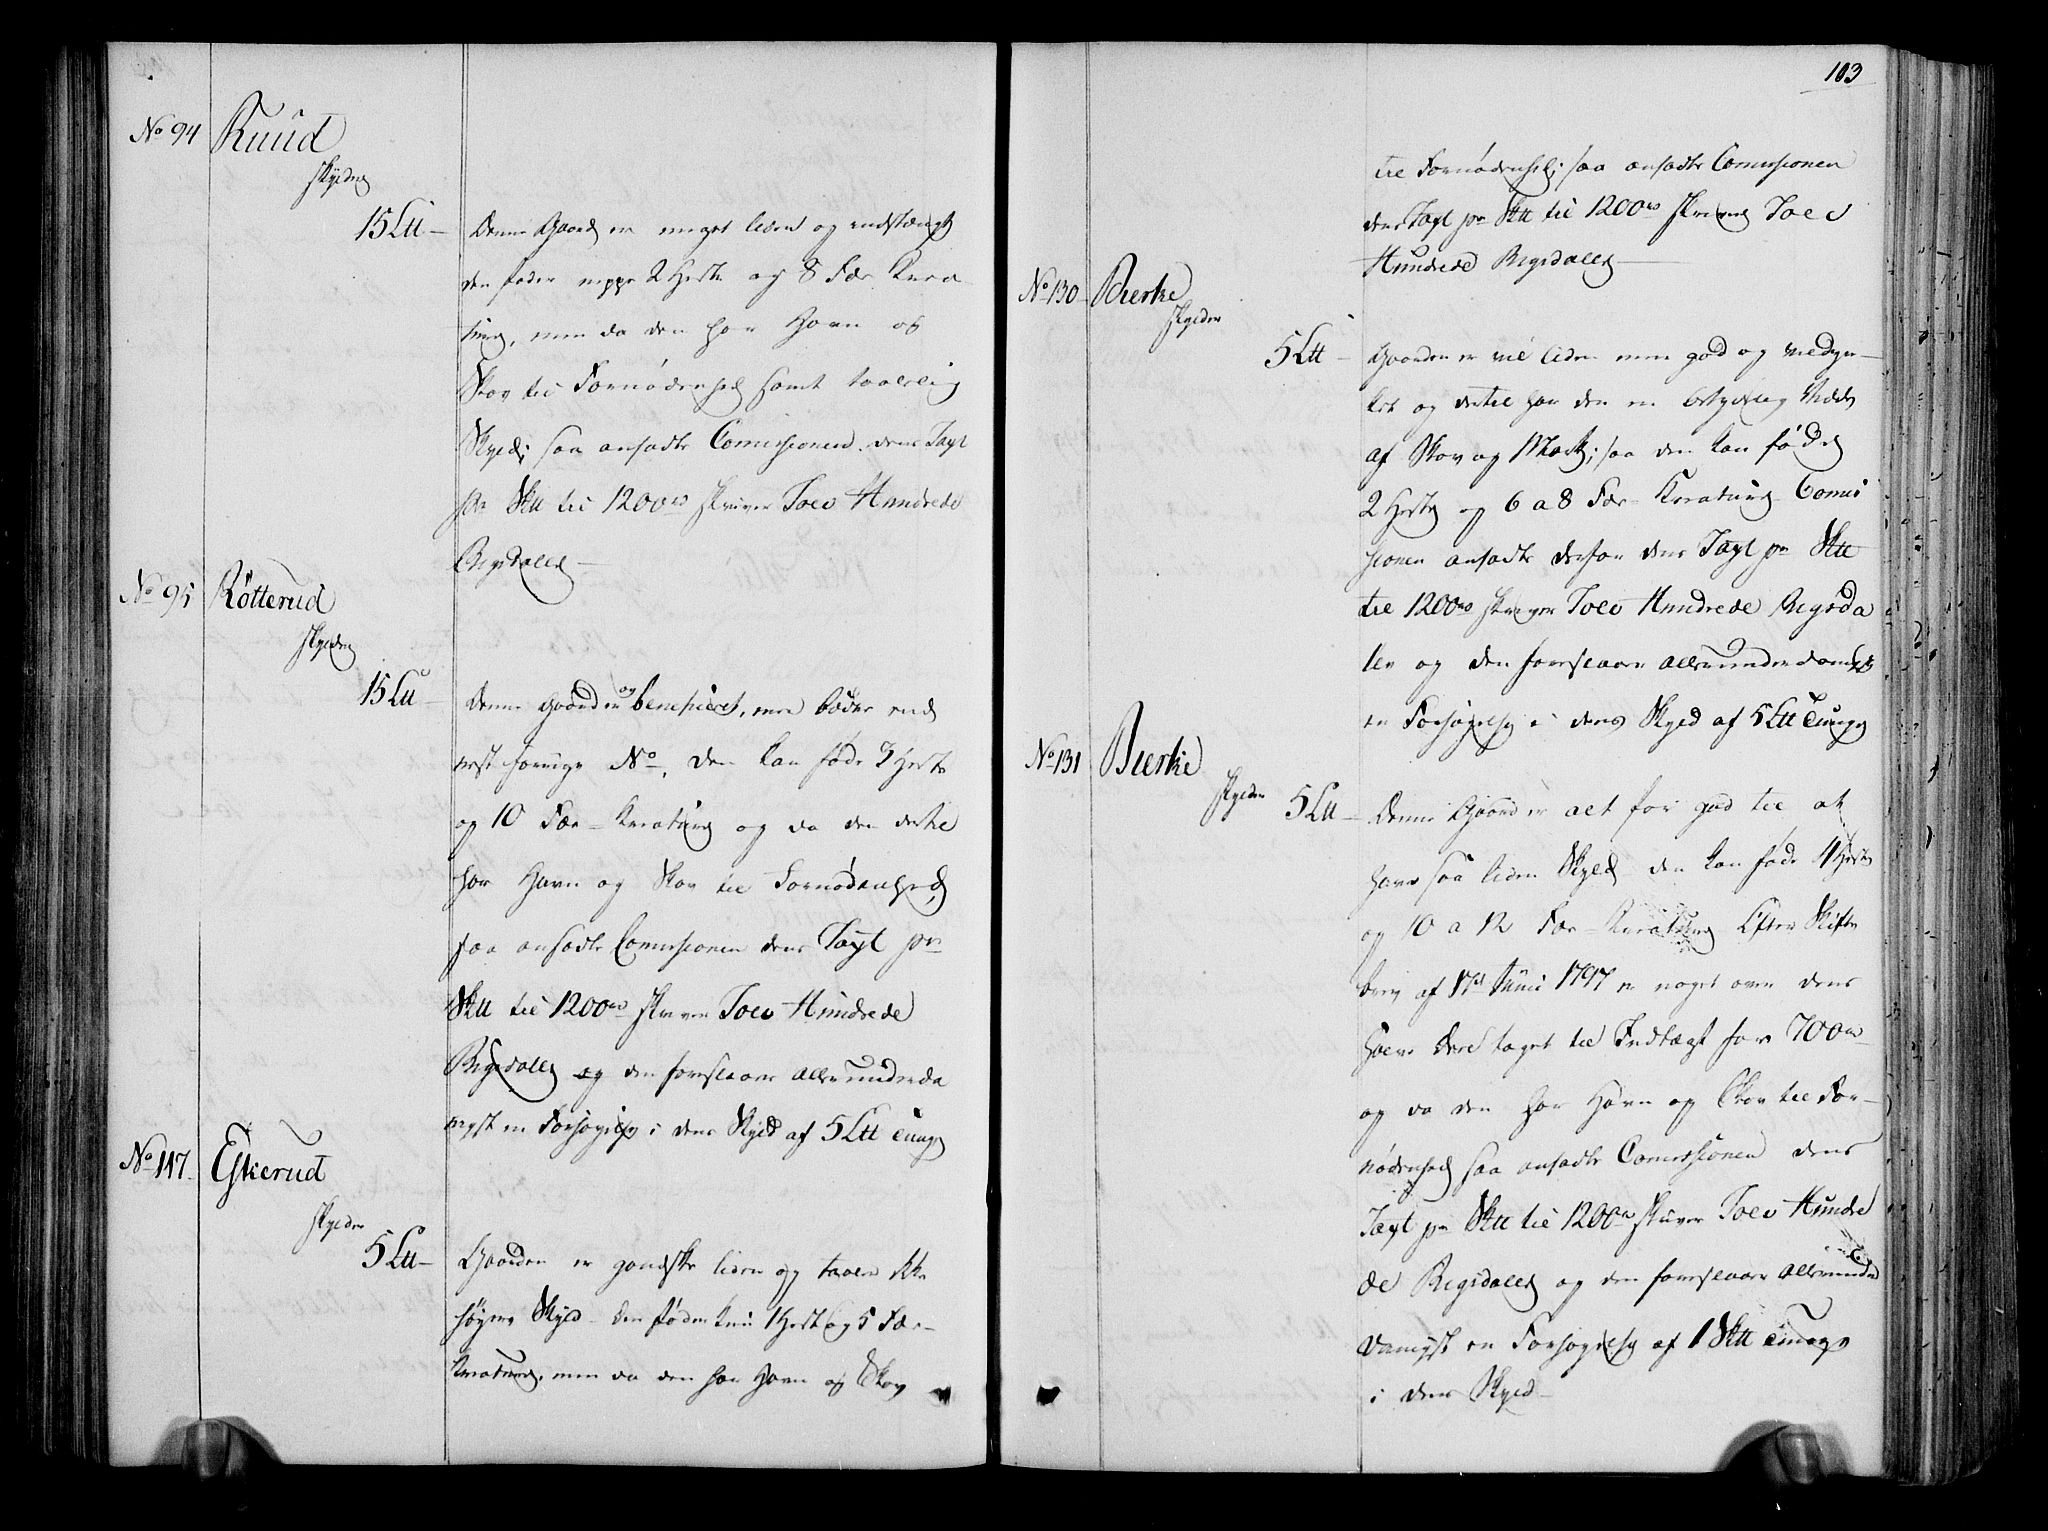 No 94 Ruud
skylder
15 Ltt —
Denne Gaard er meget liden og endskiøndt
den føder neppe 2 Heste og 8 Fæe Krea-
turer, men da den har Havn og
Skov til Fornødenhed samt taalelig
Skyld; saa ansadte Comissionen dens Taxt
pr Sktt til 1200rd skriver Tolv Hundrede
Rigsdaler —
No 95 Rötterud
skylder
15 Ltt —
Denne Gaard er og beneficeret, men bedre end
nest forrige No. den kan føde 3 Heste
og 10 Fæe-Kreaturer og da den dertil
har Havn og Skov til Fornødenhed,
saa ansadte Comissionen dens Taxt pr
Sktt til 1200rd skriver Tolv Hundrede
Rigsdaler og den foreslaaer allerunderda
nigst en Forhøyelse i dens Skyld af 5 Ltt Tunge
No 117. Eskerud
skylder
5 Ltt —
Gaarden er gandske liden og taaler ikke
høyere Skyld. Den føder kun 1 Hest og 5 Fæe-
Kreaturer, men da den har Havn og Skov
103
til Fornødenhed; saa ansadte Comissionen
dens Taxt pr Sktt til 1200rd skriver Tolv
Hundrede Rigsdaler —
No 130 Bierke
skylder
5 Ltt —
Gaarden er vel liden men god og veldyr-
ket og dertil har den en betydelig Vidde
af Skov og Mark; saa den kan føde
2 Heste og 6 a 8 Fæe-Kreaturer Comis
sionen ansadte derfor dens Taxt pr Sktt
til 1200rd skriver Tolv Hundrede Rigsda
ler og den foreslaaer allerunderdanigst
en Forhøyelse i dens Skyld af 5 Ltt Tunge
No 131 Bierke
skylder
5 Ltt —
Denne Gaard er alt for god til at
have saa liden Skyld den kan føde 4 Heste
og 10 a 12 Fæe-Kreaturer Efter Skifte
brev af 17d Junii 1797 er noget over dens
halve Deel taget til Indtægt for 700rd
og da den har Havn og Skov til For-
nødenhed saa ansadte Comissionen dens
Taxt pr Sktt til 1200rd skriver Tolv Hundre
de Rigsdaler og den foreslaaer allerunder
danigst en Forhøyelse af 1 Sktt Tunge
i dens Skyld